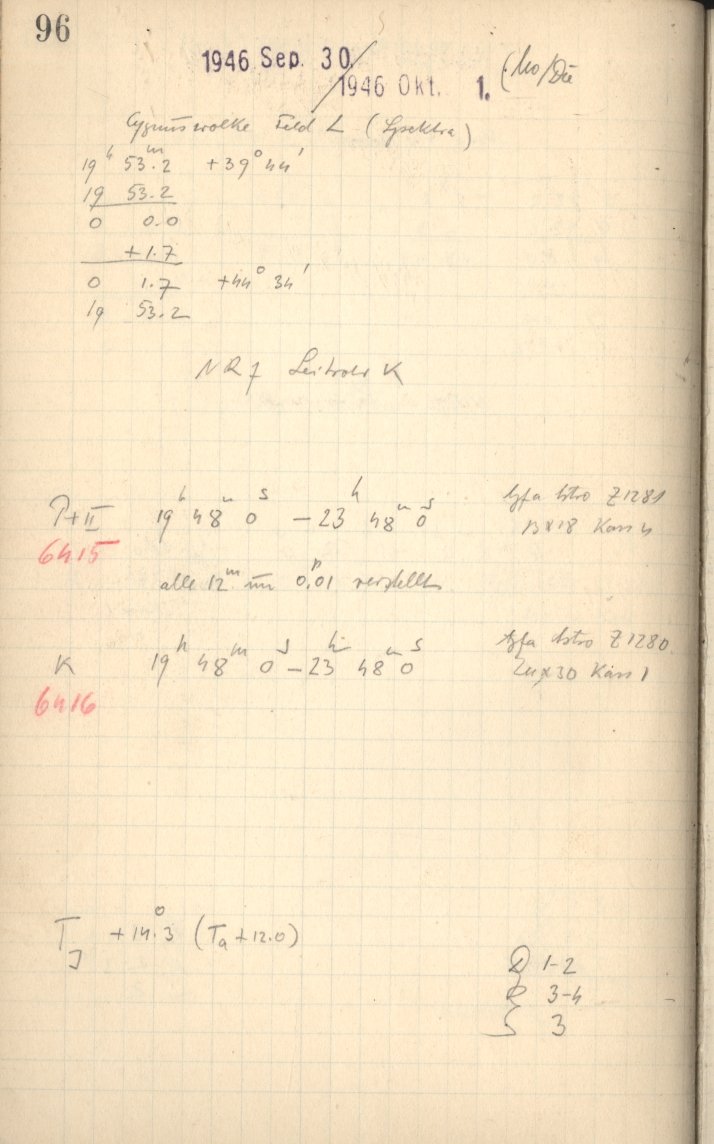 96
1946 Sep. 30.
1946 Okt. 1. (Mo/Die
Cygnuswolke Feld L (Spektra)
19h 53.m2 +39° 44'
19 53.2
0 0.0
+1.7
0 1.7 +44° 34'
19 53.2
NR 7 Leitrohr K
P+II 19h 48m 0s – 23h 48m 0s Agfa Astro Z1281
6415 13x18 Kass 4
alle 12m um 0.p01 verstellt
K 19h 48m 0s – 23h 48m 0s Agfa Astro Z1280
6416 24x30 Kass 1
TJ +14.°3 (Ta +12.0)
D 1-2
R 3-4
S 3